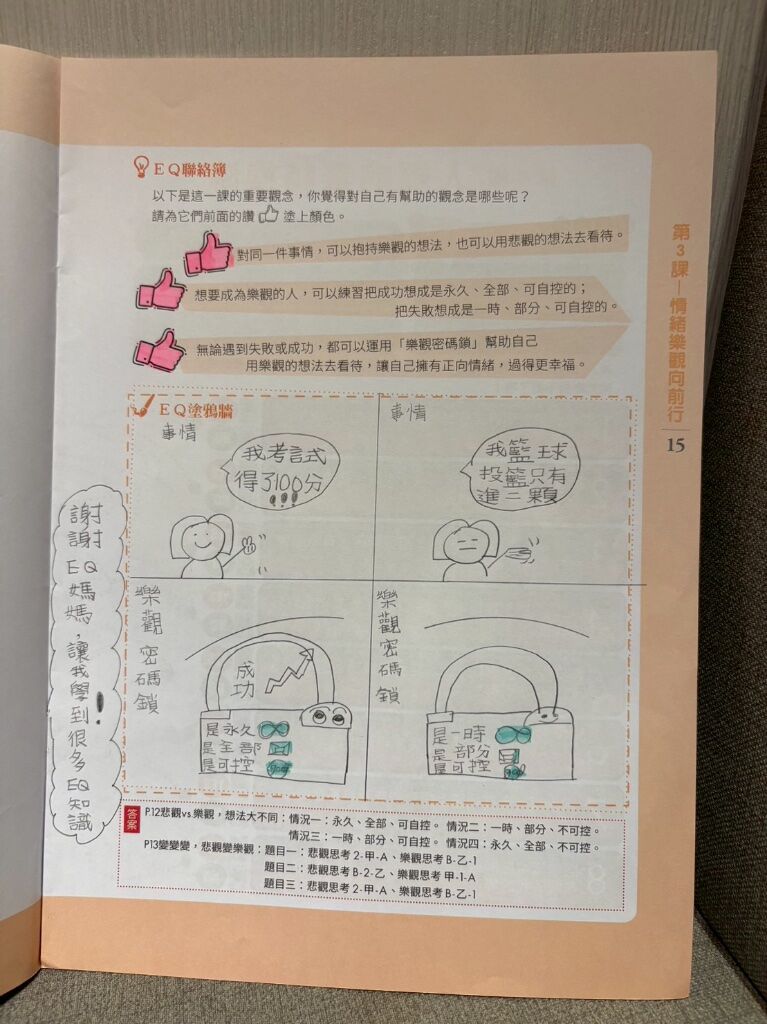 EQ聯絡簿
以下是這一課的重要觀念，你覺得對自己有幫助的觀念是哪些呢？
請為它們前面的讚 塗上顏色。
對同一件事情，可以抱持樂觀的想法，也可以用悲觀的想法去看待。
想要成為樂觀的人，可以練習把成功想成是永久、全部、可自控的；
把失敗想成是一時、部分、可自控的。
無論遇到失敗或成功，都可以運用「樂觀密碼鎖」幫助自己
用樂觀的想法去看待，讓自己擁有正向情緒，過得更幸福。
第3課—情緒樂觀向前行
15
EQ塗鴉牆
事情
我考試
得了100分
!!!
事情
我籃球
投籃只有
進二顆
樂觀密碼鎖
成功
是永久
是全部
是可控
樂觀密碼鎖
是一時
是部分
是可控
謝謝EQ媽媽，讓我學到很多EQ知識!
答案
P.12悲觀vs.樂觀，想法大不同：情況一：永久、全部、可自控。 情況二：一時、部分、不可控。
情況三：一時、部分、可自控。 情況四：永久、全部、不可控。
P13變變變，悲觀變樂觀：題目一：悲觀思考 2-甲-A、樂觀思考 B-乙-1
題目二：悲觀思考 B-2-乙、樂觀思考 甲-1-A
題目三：悲觀思考 2-甲-A、樂觀思考 B-乙-1